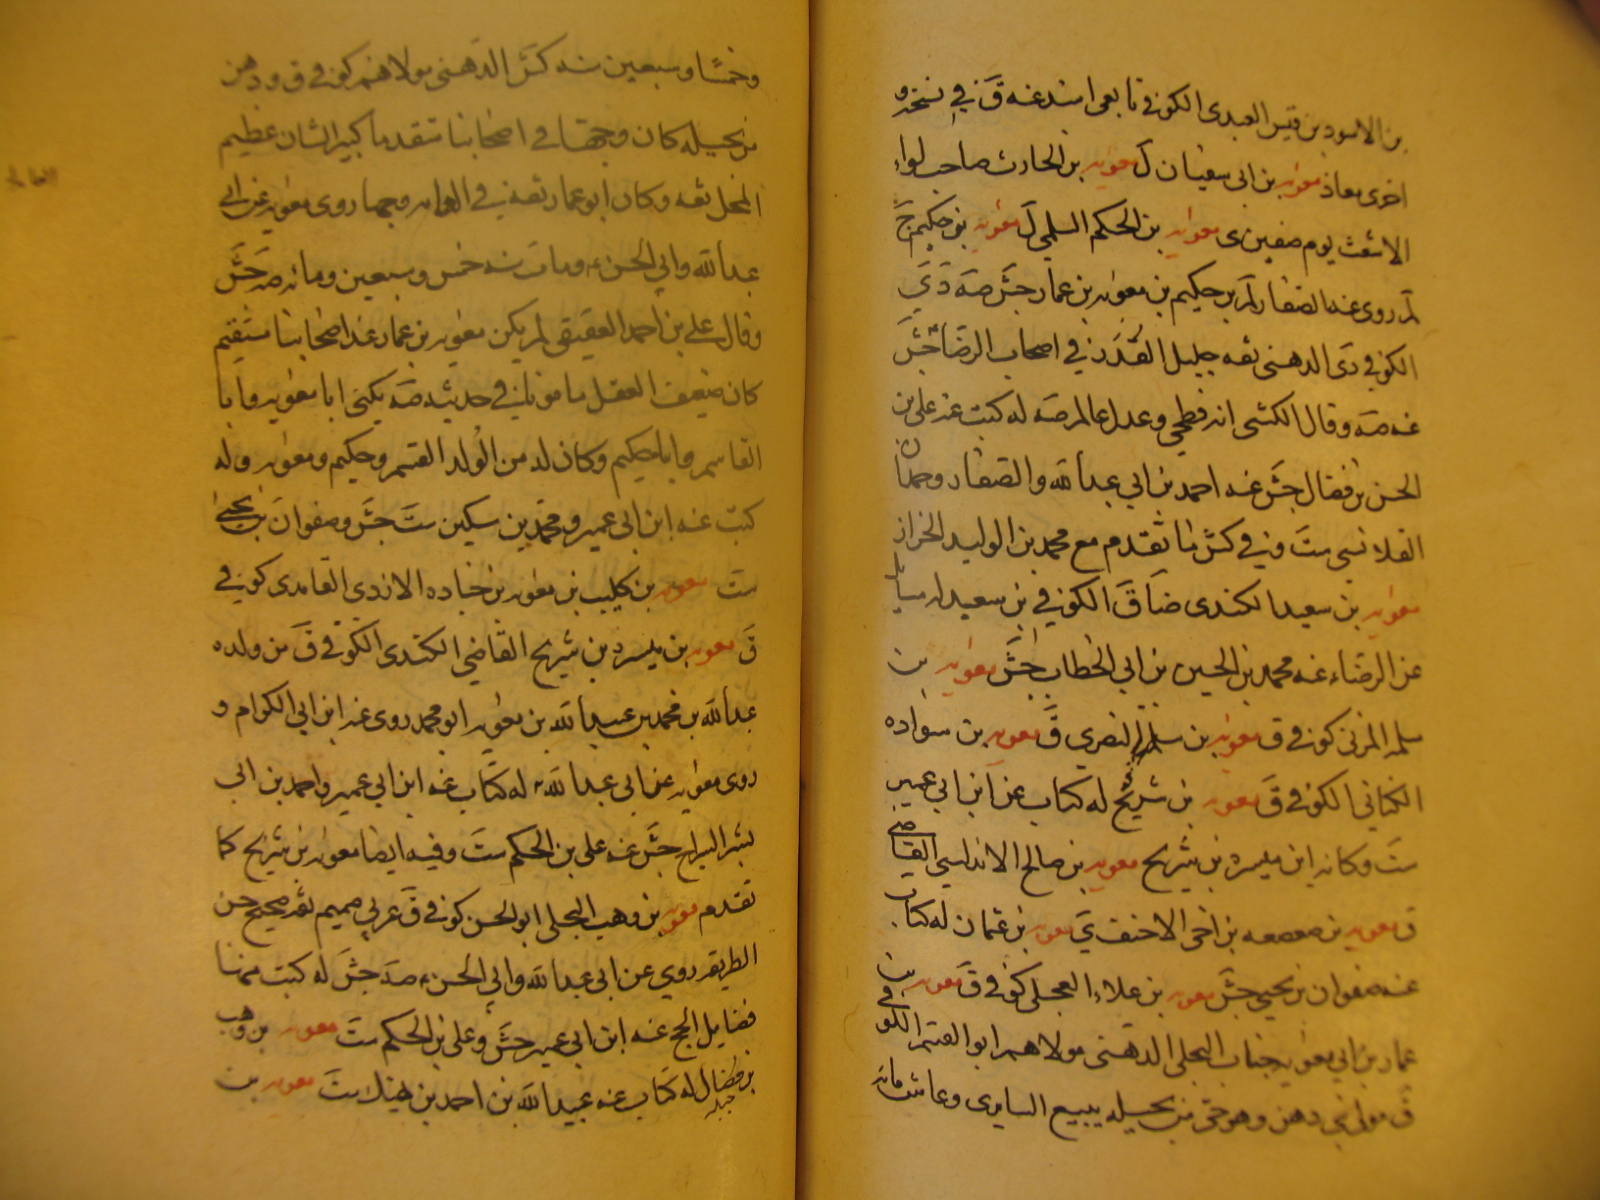 بن الاسود بن قيس العبدى الكوفى تابعى اسند عنه ق في نسخه و
اخرى معاذ معويه بن ابى سفيان ل معويه بن الحارث صاحب لواء
الاشعث يوم صفين ى معويه بن الحكم السلمى ل معويه بن حكيم ج
لم روى عنه الصفار لم بن حكيم بن معويه بن عمار جش صه دى
الكوفى دى الدهنى ثقه جليل القدر في اصحاب الرضا جش
عنه صه وقال الكشى انه فطحى وعدل عالم صه له كتب عنه على بن
الحسن بن فضال جش عنه احمد بن ابى عبدالله والصفار وحمدان
القلانسى ست وفي كش ما تقدم مع محمد بن الوليد الخزاز
معويه بن سعيد الكندى ضا ق الكوفى بن سعيد له مسايل
عن الرضا عنه محمد بن الحسين بن ابى الخطاب جش معويه بن
سلمه المزنى كوفى ق معويه بن سلمه النصرى ق معويه بن سواده
الكنانى الكوفى ق معويه بن شريح له كتاب عن ابن ابى عمير
ست وكانه ابن ميسره بن شريح معويه بن صالح الاندلسى القاضى
ق معويه بن صعصعه بن اخى الاحنف ى معويه بن عثمان له كتاب
عنه صفوان بن يحيى جش معويه بن علاء العجلى كوفى ق معويه بن
عمار بن ابى معويه خباب البجلى الدهنى مولاهم ابو القسم الكوفى
ق مولى بنى دهن وهو حى من بجيله يبيع السابرى وعاش مائه
وخمسا وسبعين سنه كش الدهنى مولاهم كوفى ق ودهن
من بجيله كان وجها في اصحابنا متقدما كبير الشان عظيم
المحل ثقه وكان ابو عمار ثقه في العامه وجها روى معويه عن ابى
عبدالله وابى الحسن ومات سنه خمس وسبعين ومائه صه جش
وقال على بن احمد العقيقى لم يكن معويه بن عمار عند اصحابنا مستقيم
كان ضعيف العقل مامونا في حديثه صه يكنى ابا معويه وابا
القاسم وابا حكيم وكان له من الولد القسم وحكيم ومعويه وله
كتب عنه ابن ابى عمير ومحمد بن سكين ست جش وصفوان بن يحيى
ست معويه بن كليب بن معويه بن جناده الازدى الغامدى كوفى
ق معويه بن ميسره بن شريح القاضى الكندى الكوفى ق من ولده
عبدالله بن محمد بن عبيدالله بن معويه ابو محمد روى عنه ابن ابى الكرام و
روى معويه عن ابى عبدالله له كتاب عنه ابن ابى عمير واحمد بن ابى
بشر السراج جش عنه على بن الحكم ست وفيه ايضا معويه بن شريح كما
تقدم معويه بن وهب البجلى ابو الحسن كوفى ق عربى صميم ثقه صحيح حسن
الطريقه روى عن ابى عبدالله وابى الحسن صه جش له كتب منها
فضايل الحج عنه ابن ابى عمير جش وعلى بن الحكم ست معويه بن وهب
بن فضال له كتاب عنه عبيدالله بن احمد بن نهيك ست معويه بن
جبله